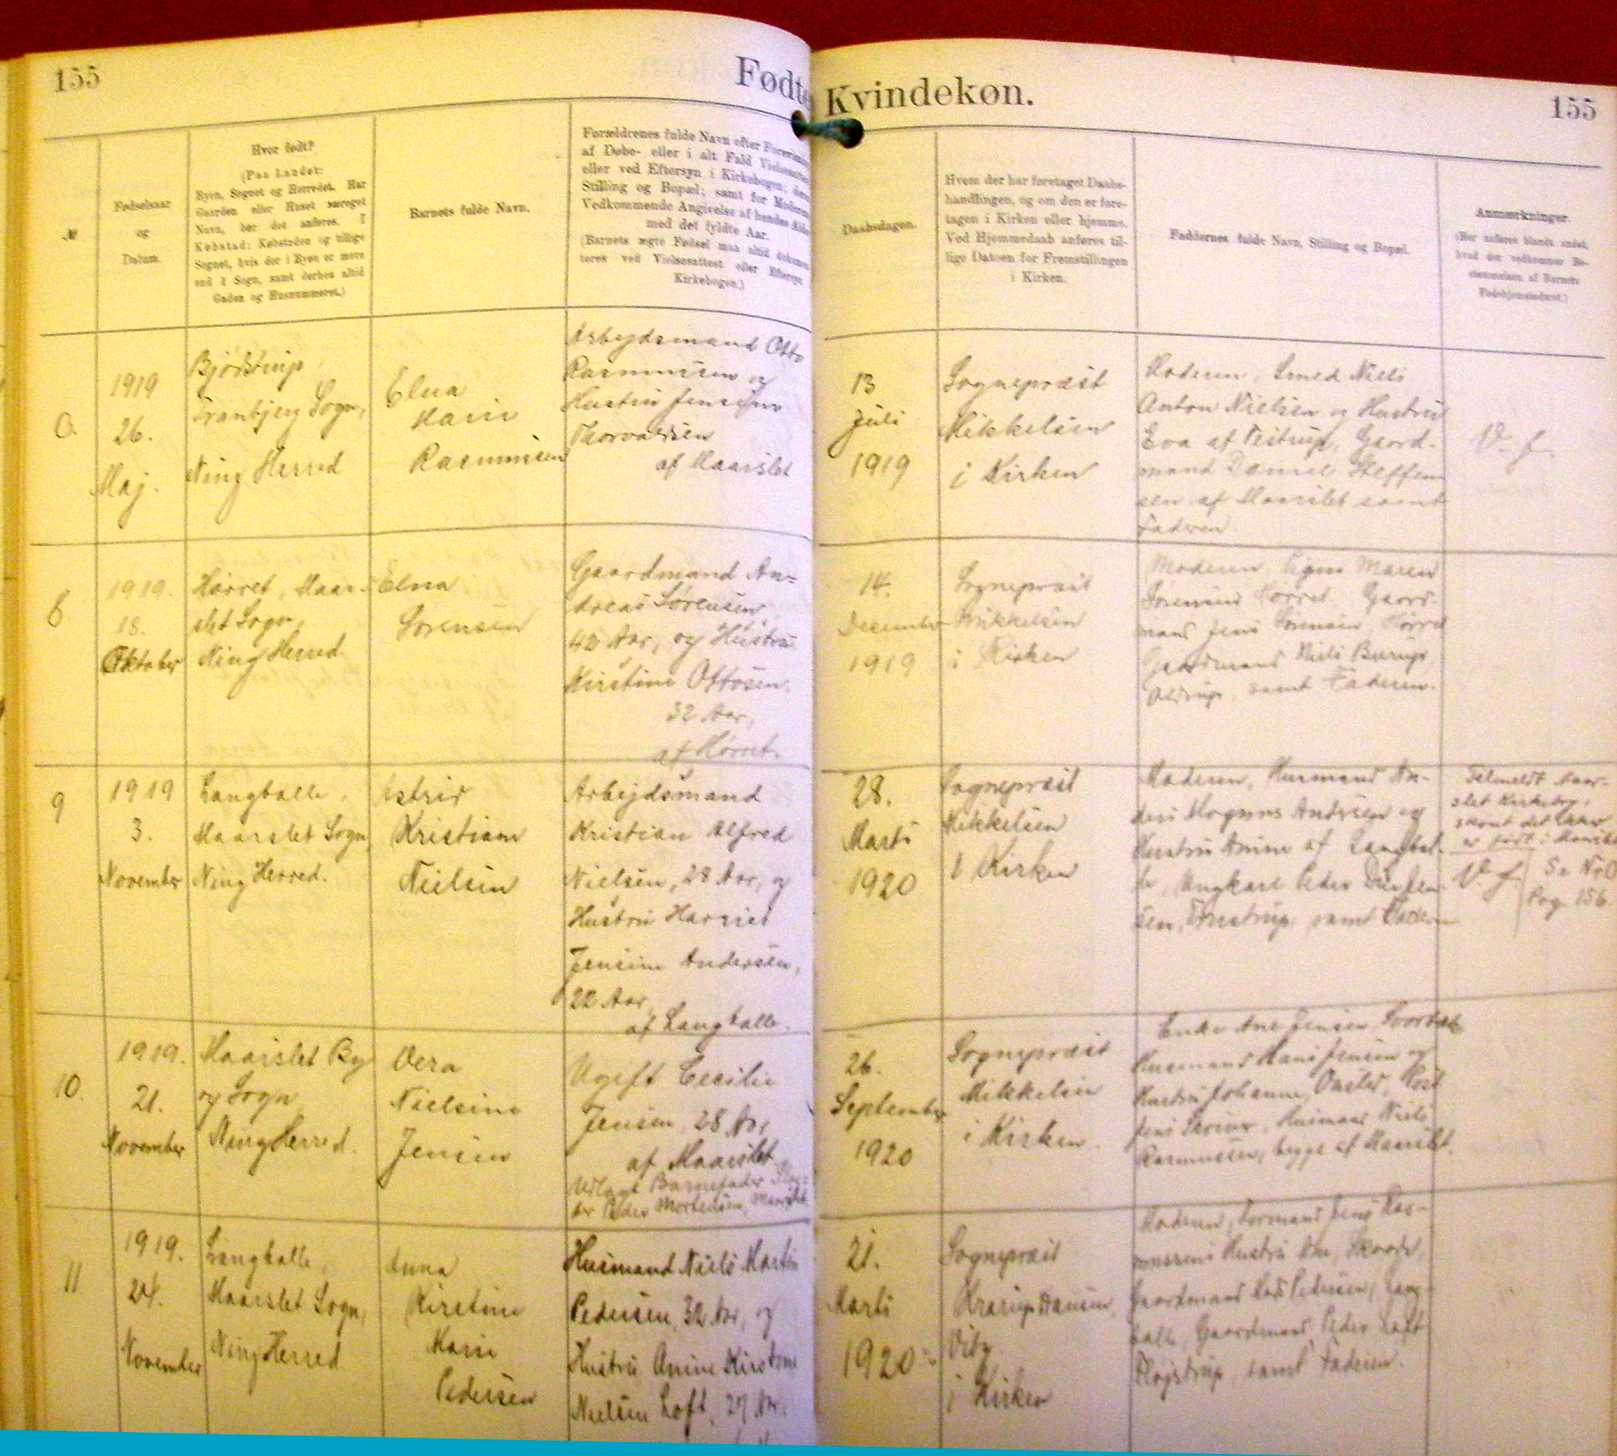 155
Fødte
Kvindekøn.
155
№
Fødselsaar
og
Datum.
Hvor født?
(Paa Landet:
Byen, Sognet og Herredet. Har
Gaarden eller Huset særeget
Navn, bør det anføres. I
Købstad: Købstaden og tillige
Sognet, hvis der i Byen er mere
end 1 Sogn, samt derhos altid
Gaden og Husnummeret.)
Barnets fulde Navn.
Forældrenes fulde Navn efter
af Døbe- eller i alt Fald
eller ved Eftersyn i Kirkebogen;
Stilling og Bopæl; samt for
Vedkommende Angivelse af hendes
med det fyldte Aar.
(Barnets ægte Fødsel maa altid
teres ved Vielsesattest eller Eftersyn
Kirkebogen.)
Daabsdagen.
Hvem der har foretaget Daabs-
handlingen, og om den er fore-
tagen i Kirken eller hjemme.
Ved Hjemmedaab anføres til-
lige Datoen for Fremstillingen
i Kirken.
Faddernes fulde Navn, Stilling og Bopæl.
Anmærkninger.
(Her anføres blandt andet,
hvad der vedkommer Be-
stemmelsen af Barnets
Fødehjemstedsret.)
1919
26.
Maj.
Tranbjerg Sogn,
Ning Herred
Elna
Marie
Rasmussen
Arbejdsmand Otto
Rasmussen og
Hustru Jensine
Thorvaldsen
af Maarslet
13
Juli
1919
Sognepræst
Mikkelsen
i Kirken
Moderen, Smed Niels
Anton Nielsen og Hustru
Eva af Testrup, Gaard-
mand Daniel Steffen-
sen af Maarslet samt
Faderen
V. f.
1919.
18.
Oktober
Hørret, Maar-
slet Sogn,
Ning Herred
Elna
Sørensen
Gaardmand An-
dreas Sørensen,
42 Aar, og Hustru
Kirstine Ottosen.
32 Aar,
af Hørret.
14.
December
1919
Sognepræst
Mikkelsen
i Kirken
Moderen, Pigen Maren
Sørensen Hørret. Gaard-
mand Jens Sørensen, Hørret
Gaardmand Niels
samt Faderen.
9
1919
3.
November
Langballe,
Maarslet Sogn,
Ning Herred.
Astrid
Kristiane
Nielsen
Arbejdsmand
Kristian Alfred
Nielsen, 28 Aar, og
Hustru Harriet
Jensine Andersen,
22 Aar,
af Langballe.
28.
Marts
1920
Sognepræst
Mikkelsen
i Kirken
Moderen, Husmand An-
ders Mogens Andersen og
Hustru Anine af Langbal-
le, Ungkarl Peder
samt Faderen
Tilmeldt Maar-
slet Kirkebog,
skønt det ikke
er født i Maarslet
V. f.
Se Nr
Pag. 156.
10.
1919.
21.
November
Maarslet By
og Sogn
Ning Herred.
Vera
Nielsine
Jensen
Ugift Cecilie
Jensen, 28 Aar,
af Maarslet
Udlagt Barnefader
Peder Mortensen, Maarslet.
26.
September
1920
Sognepræst
Mikkelsen
i Kirken.
Enke Ane Jensen
Husmand Hans Jensen og
Hustru Johanne, Onsted, Post
Jens Husmand Niels
Rasmussen, begge af Maarslet.
11
1919.
24.
November
Langballe,
Maarslet Sogn,
Ning Herred
Anna
Kirstine
Marie
Pedersen
Husmand Niels Martin
Pedersen, 32 Aar, og
Hustru Anine Kirstine
Nielsen Loft, 27 Aar,
21.
Marts
1920
Sognepræst
Krarup Hansen,
Viby
i Kirken
Moderen, Formand Jens Ras-
mussens Hustru Ane, Skaade,
Gaardmand Mads Pedersen, Lang-
balle, Gaardmand Peder Loft
Pløjstrup, samt Faderen.